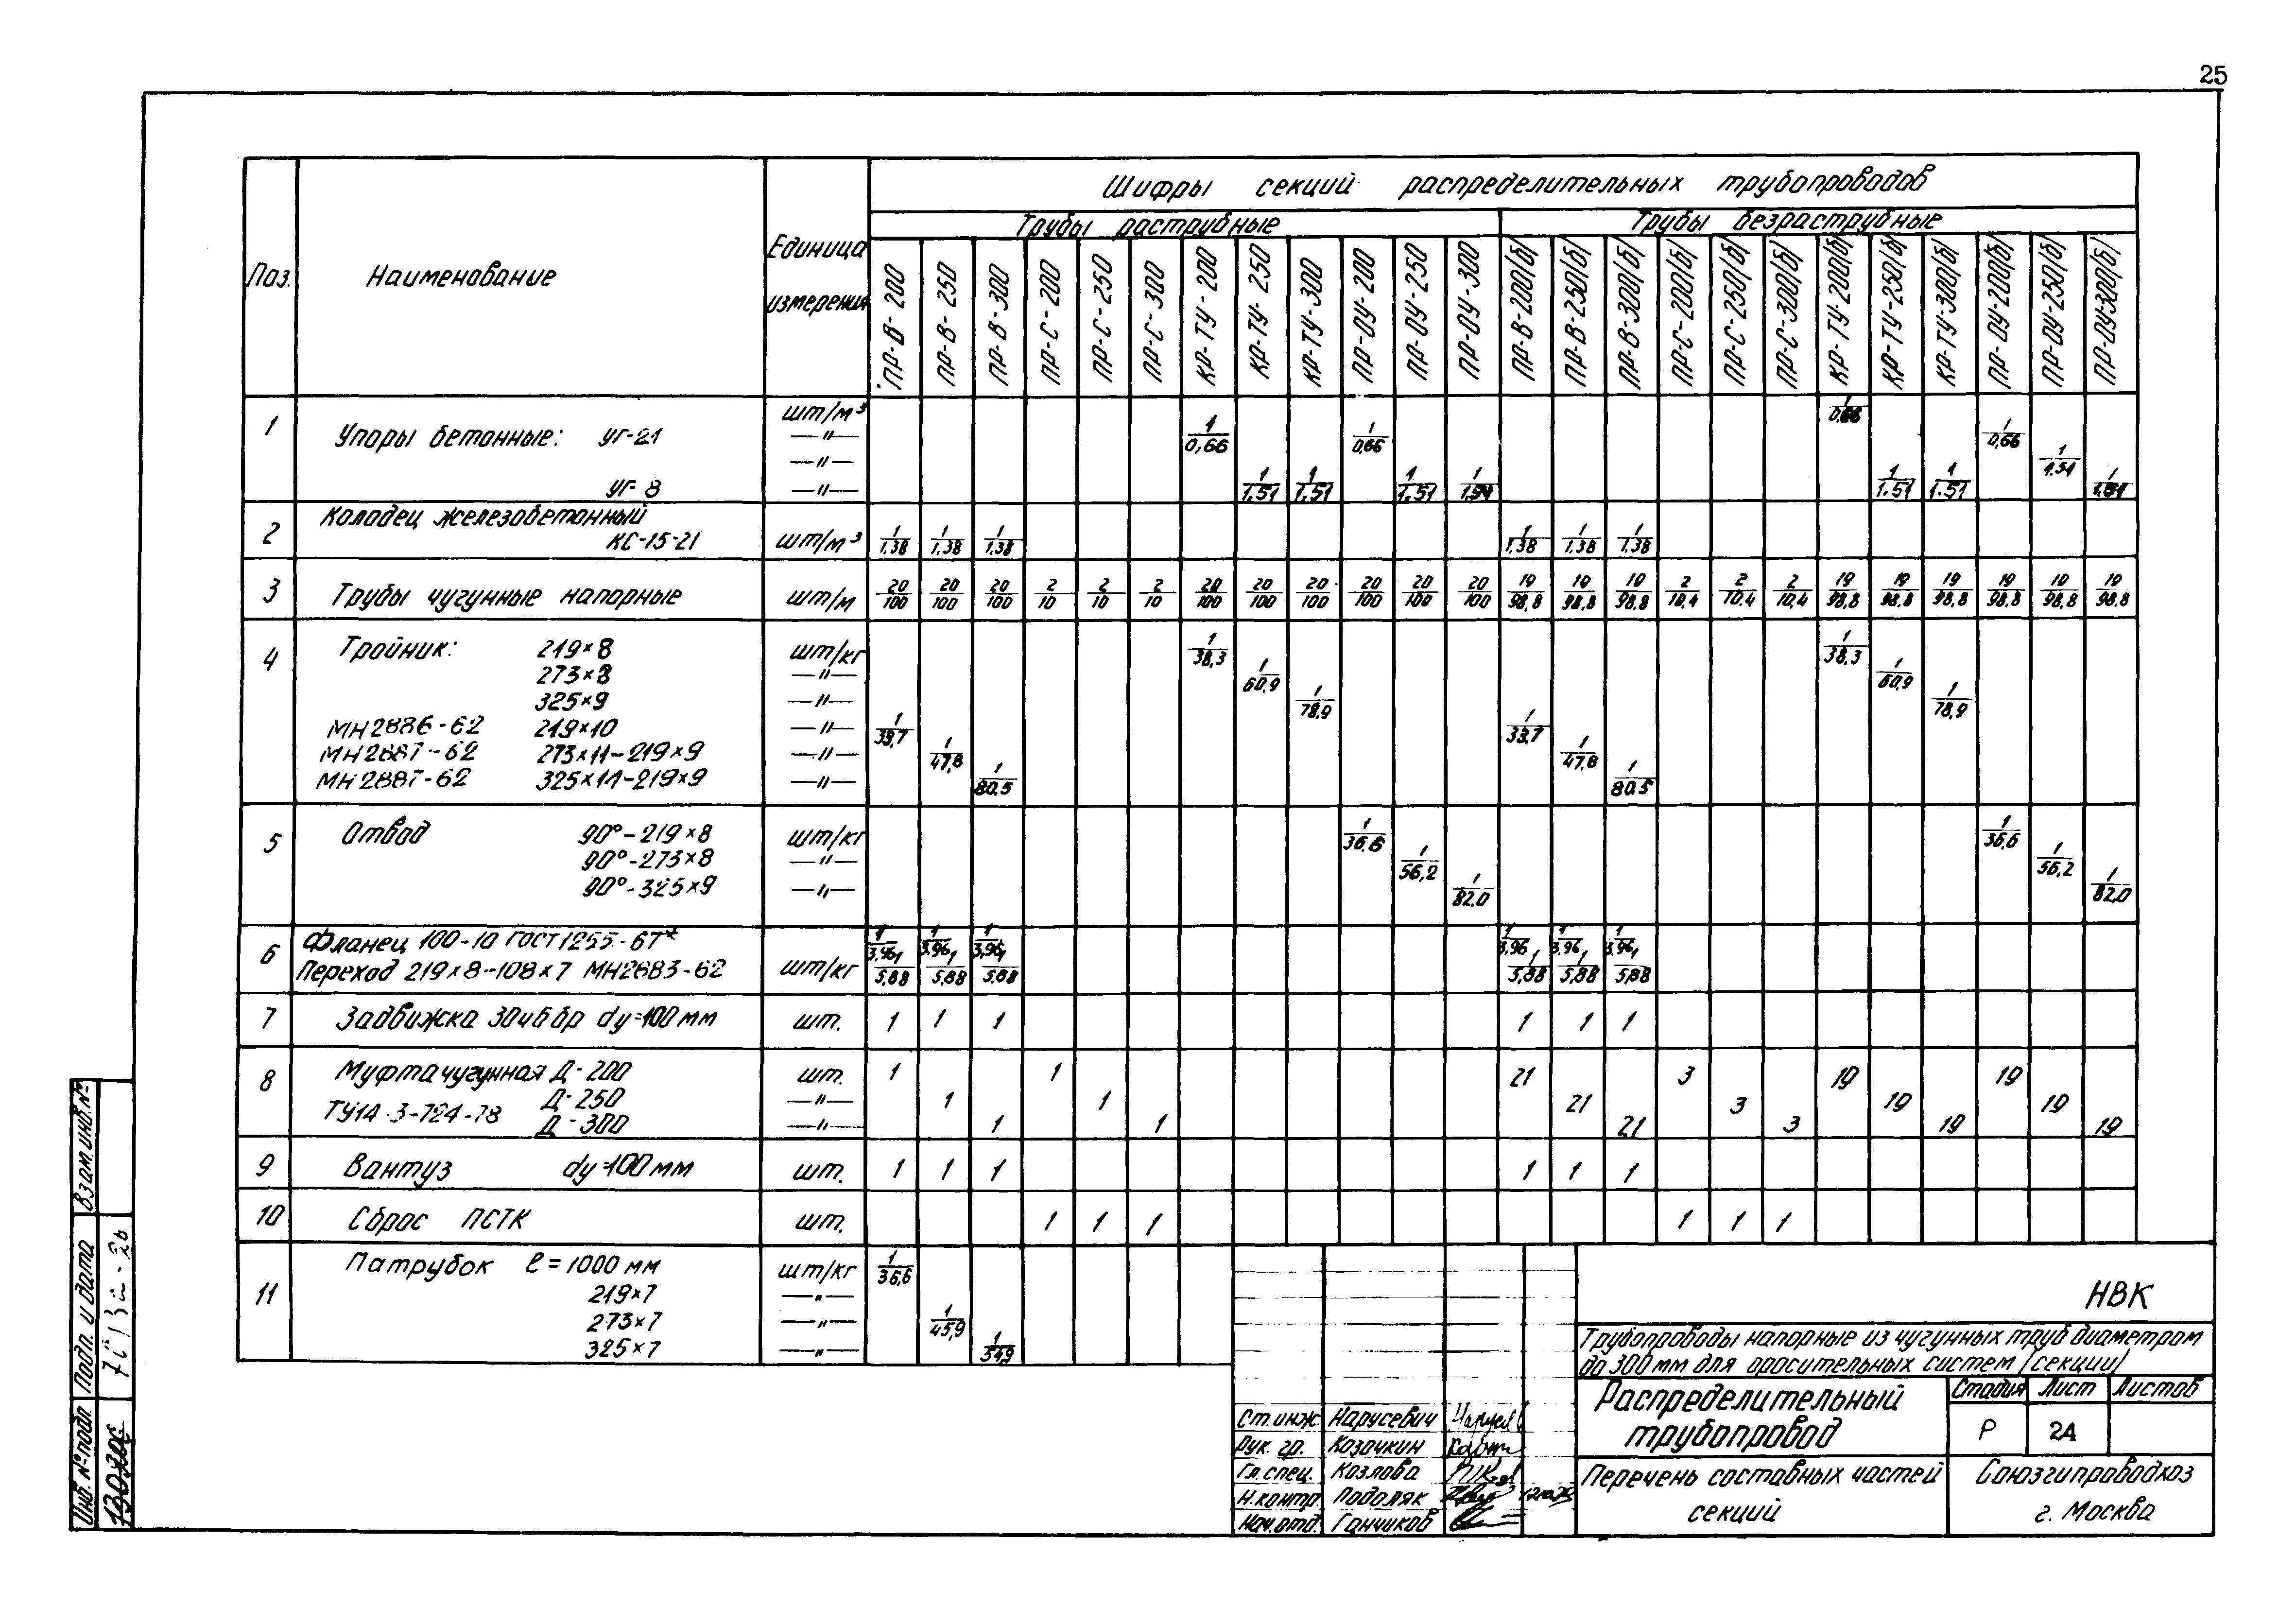 25
Шифры секций распределительных трубопроводов
Трубы раструбные Трубы безраструбные
Поз. Наименование Единица измерения
ПР-В-200 ПР-В-250 ПР-В-300 ПР-С-200 ПР-С-250 ПР-С-300 КР-ТУ-200 КР-ТУ-250 КР-ТУ-300 ПР-ОУ-200 ПР-ОУ-250 ПР-ОУ-300 ПР-В-200/б/ ПР-В-250/б/ ПР-В-300/б/ ПР-С-200/б/ ПР-С-250/б/ ПР-С-300/б/ КР-ТУ-200/б/ КР-ТУ-250/б/ КР-ТУ-300/б/ ПР-ОУ-200/б/ ПР-ОУ-250/б/ ПР-ОУ300/б/
шт/м³
1 Упоры бетонные: УГ-21 —"— 1/0,66 1/0,66 1/0,66 1/0,66
—"—
УГ-8 —"— 1/1.51 1/1.51 1/1.51 1/1.51 1/1.51 1/1.51 1/1.51 1/1.51
Колодец железобетонный
2 КС-15-21 шт/м³ 1/1,38 1/1,38 1/1,38 1/1,38 1/1,38 1/1,38
3 Трубы чугунные напорные шт/м 20/100 20/100 20/100 2/10 2/10 2/10 20/100 20/100 20/100 20/100 20/100 20/100 19/98,8 19/98,8 19/98,8 2/10,4 2/10,4 2/10,4 19/98,8 19/98,8 19/98,8 19/98,8 19/98,8 19/98,8
4 Тройник: 219×8 шт/кг 1/38,3 1/38,3
273×8 —"— 1/60,9 1/60,9
325×9 —"— 1/78,9 1/78,9
МН2886-62 219×10 —"— 1/33,7 1/33,7
МН2887-62 273×11-219×9 —"— 1/47,8 1/47,8
МН2887-62 325×11-219×9 —"— 1/80,5 1/80,5
5 Отвод 90°-219×8 шт/кг 1/36,6 1/36,6
90°-273×8 —"— 1/56,2 1/56,2
90°-325×9 —"— 1/82,0 1/82,0
6 Фланец 100-10 ГОСТ1255-67* 1/3,96 1/3,96 1/3,96 1/3,96 1/3,96 1/3,96
Переход 219×8-108×7 МН2883-62 шт/кг 1/5,88 1/5,88 1/5,88 1/5,88 1/5,88 1/5,88
7 Задвижка 30ч6бр dy=100мм шт. 1 1 1 1 1 1
8 Муфта чугунная Д-200 шт. 1 1 21 3 19 19
Д-250 —"— 1 1 21 3 19 19
ТУ14-3-724-78 Д-300 —"— 1 1 21 3 19 19
9 Вантуз dy=100мм шт. 1 1 1 1 1 1
10 Сброс ПСТК шт. 1 1 1 1 1 1
11 Патрубок ℓ=1000 мм шт/кг 1/36,6
219×7 —"—
273×7 —"— 1/45,9
325×7 —"— 1/549
НВК
Трубопроводы напорные из чугунных труб диаметром
до 300мм для оросительных систем /секции/
Распределительный
трубопровод
Стадия Лист Листов
Р 24
Перечень составных частей
секций
Союзгипроводхоз
г. Москва
Ст.инж. Нарусевич
Рук. гр. Козочкин
Гл.спец. Козлова
Н.контр. Подоляк
Нач.отд. Ганчиков
Взам.инв.№
Подп. и дата
Инв.№подл.